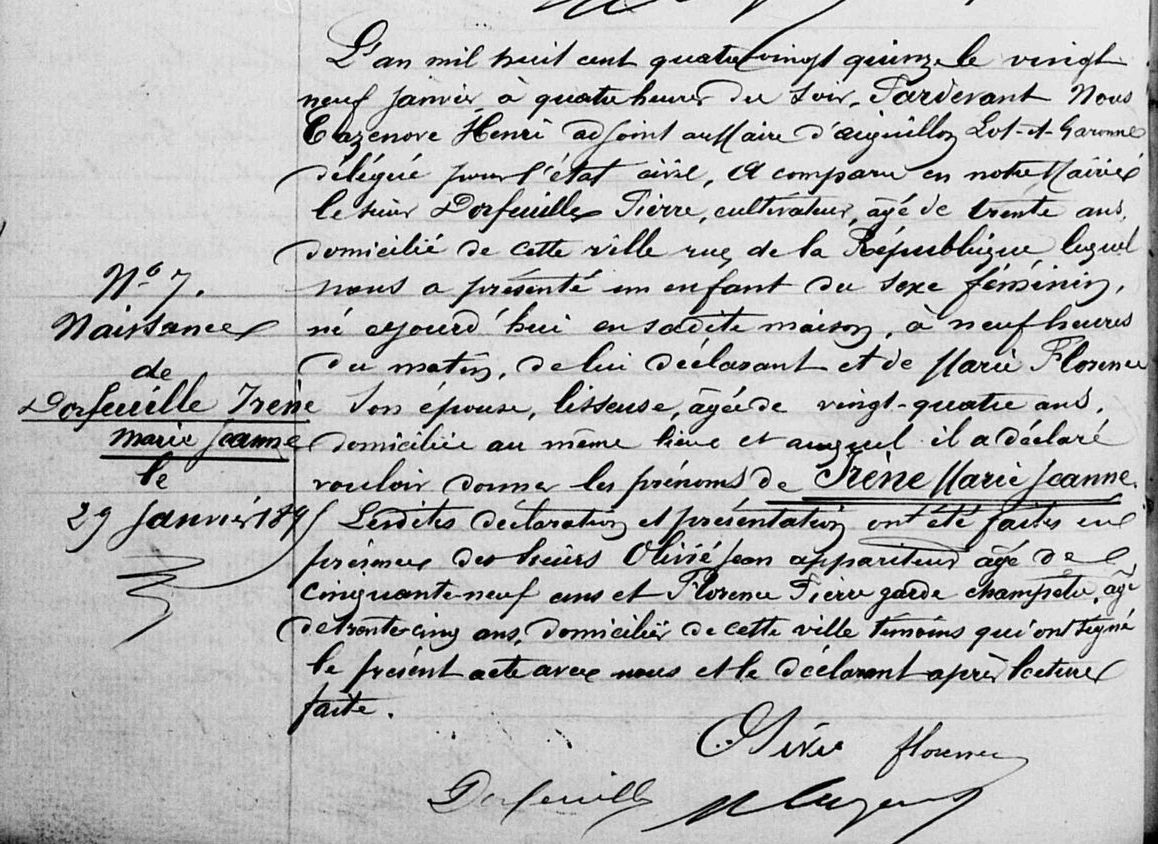 N° 7.
Naissance
de
Dorfeuille Irène
Marie Jeanne
le
29 Janvier 1895
L'an mil huit cent quatre vingt quinze le vingt
neuf Janvier, à quatre heures du soir, Pardevant Nous
Cazenove Henri adjoint au Maire d'aiguillon Lot-et-Garonne
délégué pour l'état civil, A comparu en notre Mairie
le sieur Dorfeuille Pierre, cultivateur, âgé de trente ans,
domicilié de cette ville rue de la République, lequel
nous a présenté un enfant du sexe féminin,
né aujourd'hui en sadite maison, à neuf heures
du matin, de lui déclarant et de Marie Florence
Son épouse, lisseuse, âgée de vingt-quatre ans,
domiciliée au même lieu et auquel il a déclaré
vouloir donner les prénoms de Irène Marie Jeanne.
Lesdites déclaration et présentation ont été faites en
présence des sieurs Olivié Jean appariteur âgé de
Cinquante-neuf ans et Florence Pierre garde champêtre, âgé
de trente-cinq ans, domiciliés de cette ville témoins qui ont signé
le présent acte avec nous et le déclarant après lecture
faite.
Olivié florence
Dorfeuille